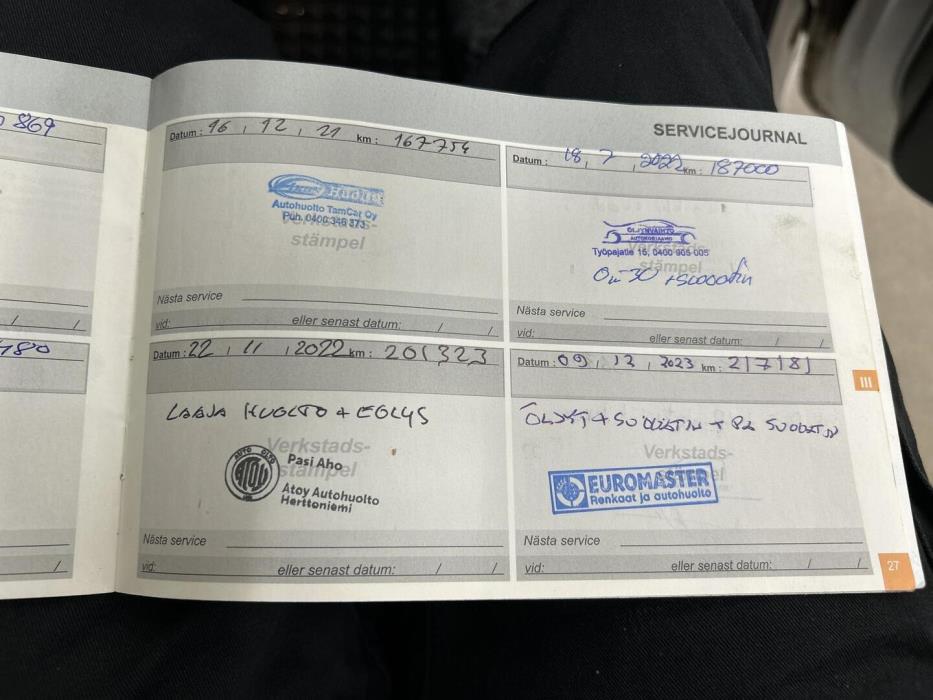 869
480
SERVICEJOURNAL
Datum: 16, 12, 21 km: 167754
Autohuolto TamCar Oy
Puh. 0400 346 373
Verkstads-
stämpel
Nästa service
vid: eller senast datum: / /
Datum: 18, 7, 2022 km: 187000
ÖLJYNVAIHTO
AUTOKORJAAMO
Työpajatie 15, 0400 905 005
Verkstads-
stämpel
0w-30 +suodatin
Nästa service
vid: eller senast datum: / /
Datum: 22, 11, 2022 km: 201323
LAAJA HUOLTO + EGLYS
Verkstads-
stämpel
AUTO OSTO
ATOY
Pasi Aho
Atoy Autohuolto
Herttoniemi
Nästa service
vid: eller senast datum: / /
Datum: 09, 12, 2023 km: 217181
ÖLJYT + SUODATIN + PA SUODATIN
Verkstads-
stämpel
EUROMASTER
Renkaat ja autohuolto
Nästa service
vid: eller senast datum: / /
III
27